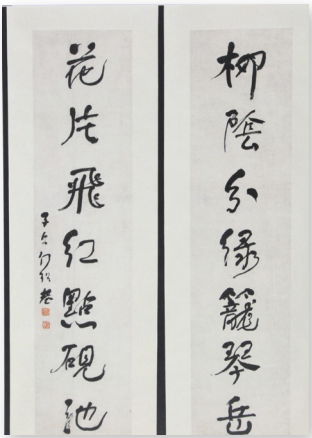 柳陰分綠籠琴岳
花片飛紅點硯池
子貞何紹基